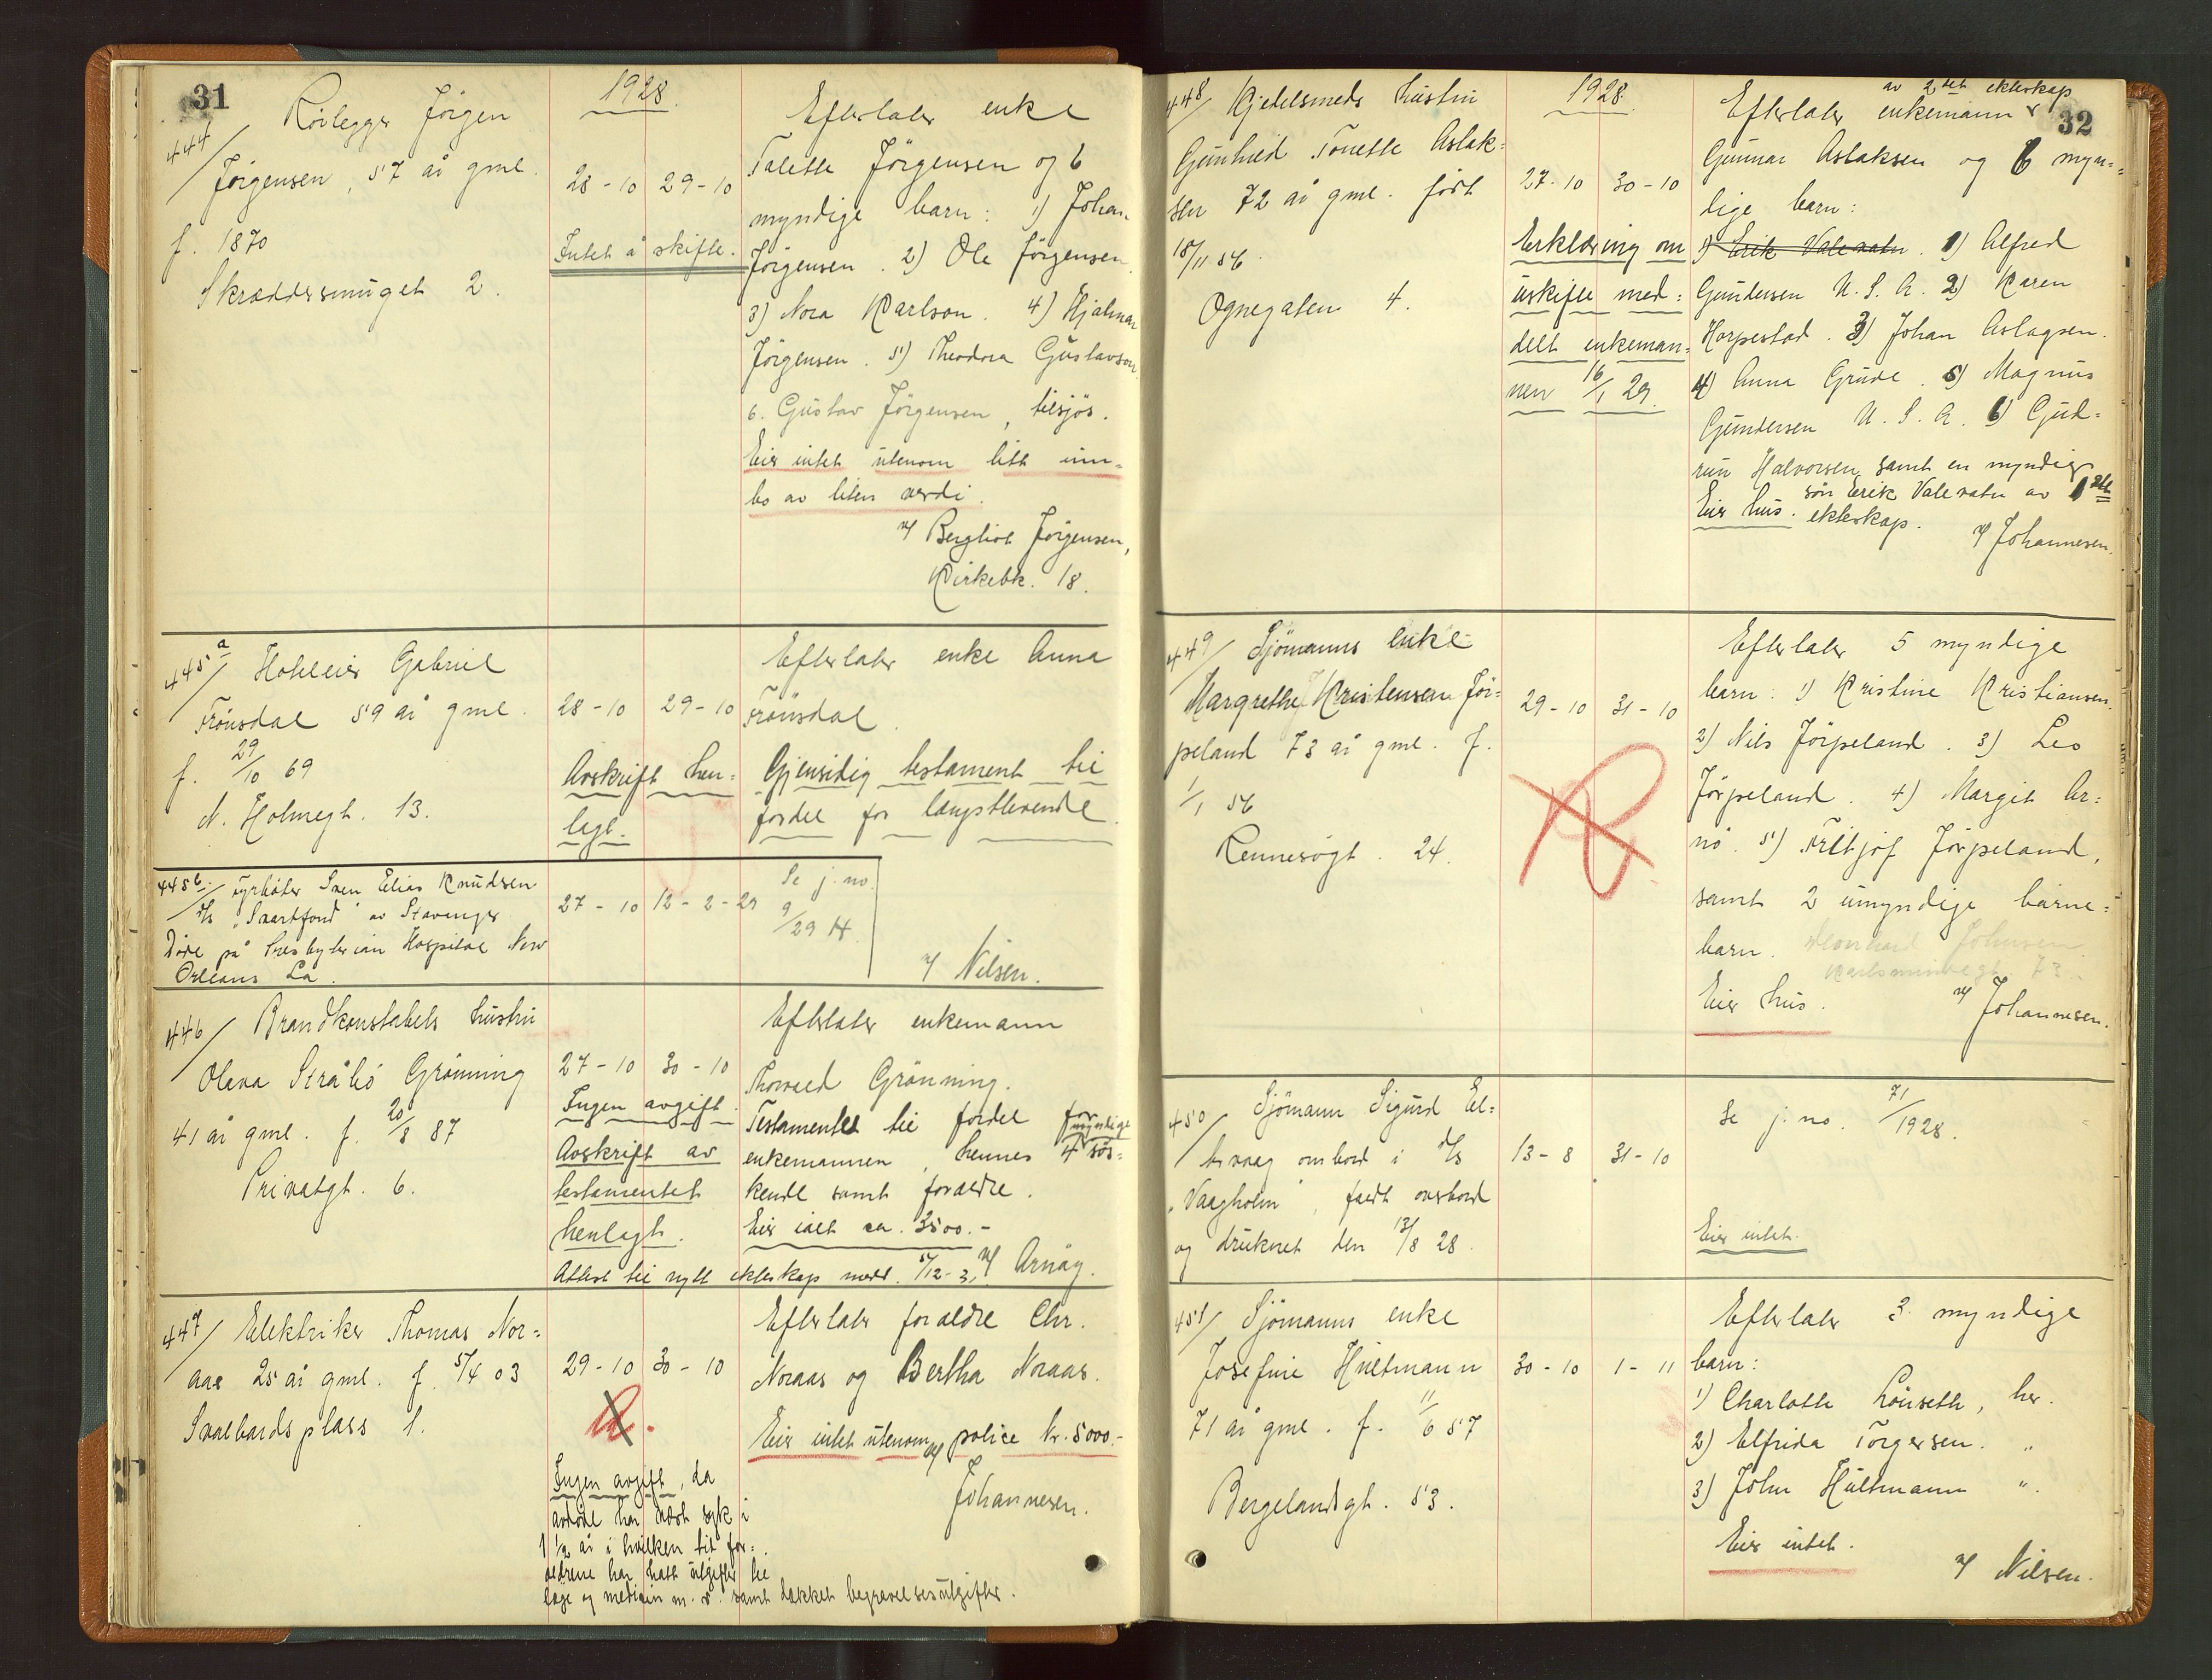 31
1928.
444/ Rörlegger Jörgen
Jörgensen, 57 år gml.
f. 1870
Skreddersmuget 2.
28-10 29-10
Intet å skifte.
Efterlater enke
Talette Jörgensen og 6
myndige barn: 1) Johan
Jörgensen. 2) Ole Jörgensen.
3) Nora Karlson. 4) Hjalmar
Jörgensen. 5) Theodora Gustavson.
6. Gustav Jörgensen, tilsjös.
Eier intet utenom litt inn-
bo av liten verdi.
v/ Bergliot Jörgensen,
Kirkebk. 18.
445a/ Hotelleier Gabriel
Frönsdal 59 år gml.
f. 29/10 69
N. Holmegt. 13.
28-10 29-10
Avskrift hen-
lagt.
Efterlater enke Anna
Frönsdal.
Gjensidig testament til
fordel for længstlevende.
v/ Nilsen.
445b/ Fyrböter Sven Elias Knudsen
D/S "Svartfond" av Stavanger
Döde på Presbyterian Hospital New
Orleans La.
27-10 12-2-29
Se j. no.
9/29 H.
446/ Brandkonstabels hustru
Olava Stråbö Grönning
41 år gml. f. 20/8 87
Privatgt. 6.
27-10 30-10
Ingen avgift.
Avskrift av
testamentet
henlagt.
Efterlater enkemann
Thorvald Grönning.
Testamentet til fordel for
enkemannen, hennes 4 myndige sös-
kende samt foreldre.
Eier ialt ca. 3500.-
v/ Arnöy.
Attest til nytt ekteskap medd. 5/12-31
447/ Elektriker Thomas Nor-
aas 25 år gml. f. 5/4 03
Svalbards plass 1.
29-10 30-10
Ingen avgift, da
avdöde har vært syk i
1 1/2 år i hvilken tid for-
eldrene har hatt utgifter til
læge og medisin m. v. samt dækket begravelsesutgifter.
Efterlater foreldre Chr.
Noraas og Bertha Noraas.
Eier intet utenom police kr. 5000.-
v/ Johannesen.
32
1928.
448/ Kjedelsmeds hustru
Gunhild Tonette Aslak-
sen 72 år gml. född
18/11 56.
Ognegaten 4.
27-10 30-10
Erklæring om
uskifte med-
delt enkeman-
nen 16/1 29.
av 2det ekteskap
Efterlater enkemann
Gunnar Aslaksen og 6 myn-
dige barn:
1) Erik Valevatn. 1) Alfred
Gundersen U.S.A. 2) Karen
Horpestad. 3) Johan Aslagsen.
4) Anna Grude. 5) Magnus
Gundersen U.S.A. 6) Gud-
run Halvorsen, samt en myndig
sön Erik Valevatn av 1ste
Eier hus. ekteskap.
v/ Johannesen.
449/ Sjömanns enke
Margrethe Kristensen Jör-
peland 73 år gml. f.
1/1 56
Rennesögt. 24.
29-10 31-10
Efterlater 5 myndige
barn: 1) Kristine Kristiansen.
2) Nils Jörpeland. 3) Leo
Jörpeland. 4) Margit Ar-
nö. 5) Fritjof Jörpeland,
samt 2 umyndige barne-
barn. Leonhard Johnsen
Karlsminnegt. 73.
Eier hus.
v/ Johannesen.
450/ Sjömann Sigurd El-
tervaag ombord i D/S
"Vaagholm", faldt overbord
og druknet den 13/8 28.
13-8 31-10
Se j. no. 71/1928.
Eier intet.
451/ Sjömanns enke
Josefine Hultmann
71 år gml. f. 11/6 57
Bergelandsgt. 53.
30-10 1-11
Efterlater 3 myndige
barn:
1) Charlotte Lönseth, her.
2) Elfrida Torgersen. "
3) John Hultmann ".
Eier intet.
v/ Nilsen.